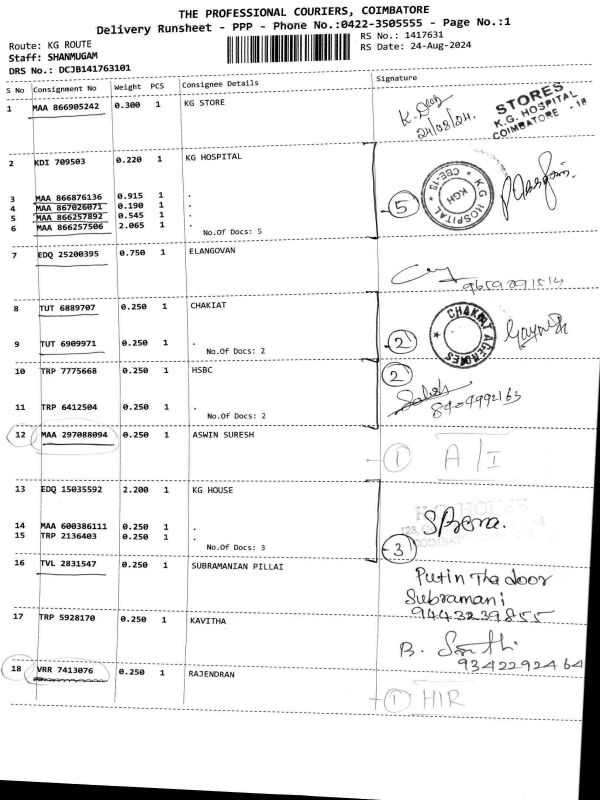 THE PROFESSIONAL COURIERS, COIMBATORE
Delivery Runsheet - PPP - Phone No.:0422-3505555 - Page No.:1
Route: KG ROUTE
RS No.: 1417631
Staff: SHANMUGAM
RS Date: 24-Aug-2024
DRS No.: DCJB141763101
S No Consignment No Weight PCS Consignee Details Signature
1 MAA 866905242 0.300 1 KG STORE
24/08/24.
STORES
K.G. HOSPITAL
COIMBATORE - 18
2 KDI 709503 0.220 1 KG HOSPITAL
3 MAA 866876136 0.915 1 .
4 MAA 867026071 0.190 1 .
5 MAA 866257892 0.545 1 .
6 MAA 866257506 2.065 1 .
No.Of Docs: 5
5
K G HOSPITAL * CBE-18 *
KGH
7 EDQ 25200395 0.750 1 ELANGOVAN
8 TUT 6889707 0.250 1 CHAKIAT
9 TUT 6909971 0.250 1 .
No.Of Docs: 2
2
CHAKIAT AGENCIES
10 TRP 7775668 0.250 1 HSBC
2
11 TRP 6412504 0.250 1 .
No.Of Docs: 2
8904992163
12 MAA 297088094 0.250 1 ASWIN SURESH
1 A/I
13 EDQ 15035592 2.200 1 KG HOUSE
14 MAA 600386111 0.250 1 .
15 TRP 2136403 0.250 1 .
No.Of Docs: 3
3
K.G. HOUSE
16 TVL 2831547 0.250 1 SUBRAMANIAN PILLAI
Put in The door
Subramani
9443239855
17 TRP 5928170 0.250 1 KAVITHA
9342292464
18 VRR 7413076 0.250 1 RAJENDRAN
1 HIR